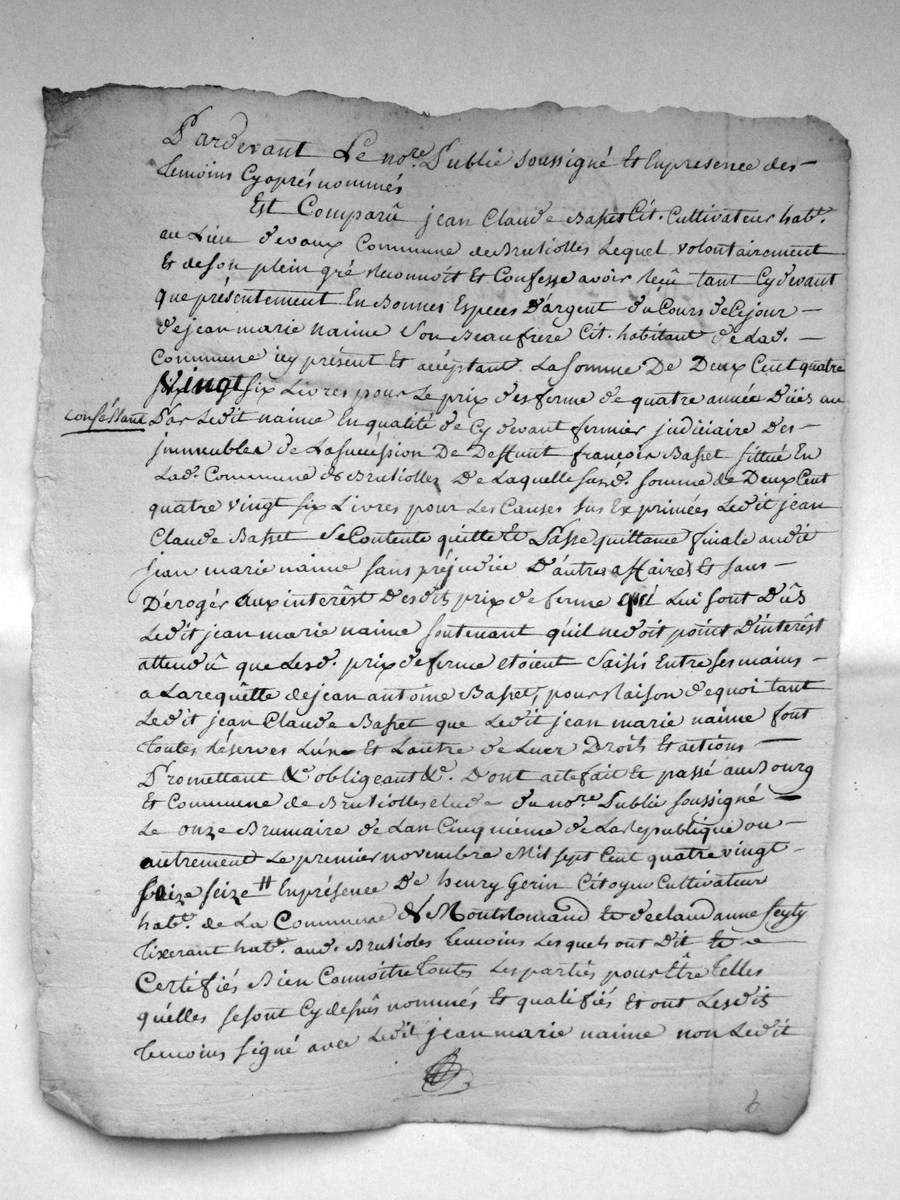 Pardevant Le no.re Public soussigné Et Enpresence des
temoins Cyaprés nommés
Est Comparû jean Claude Basset Cit. Cultivateur hab.t
au Lieu devaux Commune deBrussiolles Lequel volontairement
Et deson plein gré Reconnoit Et Confesse avoir Reçû tant Cydevant
que présentement En Bonnes Especes D'argent du Cours deCejour
dejean marie naime son Beaufrere Cit. habitant de Lad.
Commune icy présent Et acéptant La somme De Deux Cent quatre
Vingt six Livres pour Le prix des ferme de quatre année Dûës au
confessant
Par Ledit naime En qualité de Cydevant fermier judiciaire Des
jmmeubles de La sucéssion De Deffunt françois Basset sittué En
Lad. Commune de Brussiolles De Laquelle susd. somme de Deux Cent
quatre vingt six Livres pour Les Causes sus Exprimées Ledit jean
Claude Basset se Contente quitte et Passe quittance finale audit
jean marie naime sans préjudice D'autres affaires Et sans
Deroger aux interêt desdits prix de ferme qui Lui sont Dûs
Ledit jean marie naime soutenant quil nedoit point D'interêt
attendû que Lesd. prix deferme etoient saisis Entre ses mains
a La requête de jean antoine Basset, pour Raison dequoi tant
Ledit jean Claude Basset que Ledit jean marie naime font
toutes Réserves L'un Et Lautre de Leur Droits Et actions
Promettant &c obligeant &c. Dont acte fait Et passé au Bourg
Et Commune de Brussiolles etude du no.re Public soussigné
Le onze Brumaire de Lan Cinquième de La Republique ou
autrement Le premier novembre Mil sept Cent quatre vingt
seize Enprésence De henry Gerin Citoyen Cultivateur
hab.t de La Commune de Montromand Et declaudanne seyty
tixerant hab.t aud. Brussioles temoins Lesquels ont Dit Et
Certifiés Bien Connoitre toutes Lesparties pour Être telles
quélles sesont Cydesus nommés Et qualifiés Et ont Lesdits
temoins signé avec Ledit jean marie naime non Ledit
6